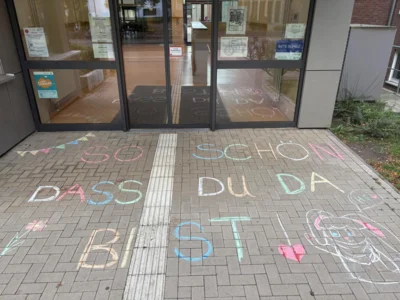 SO SCHÖN
DASS DU DA
BIST!